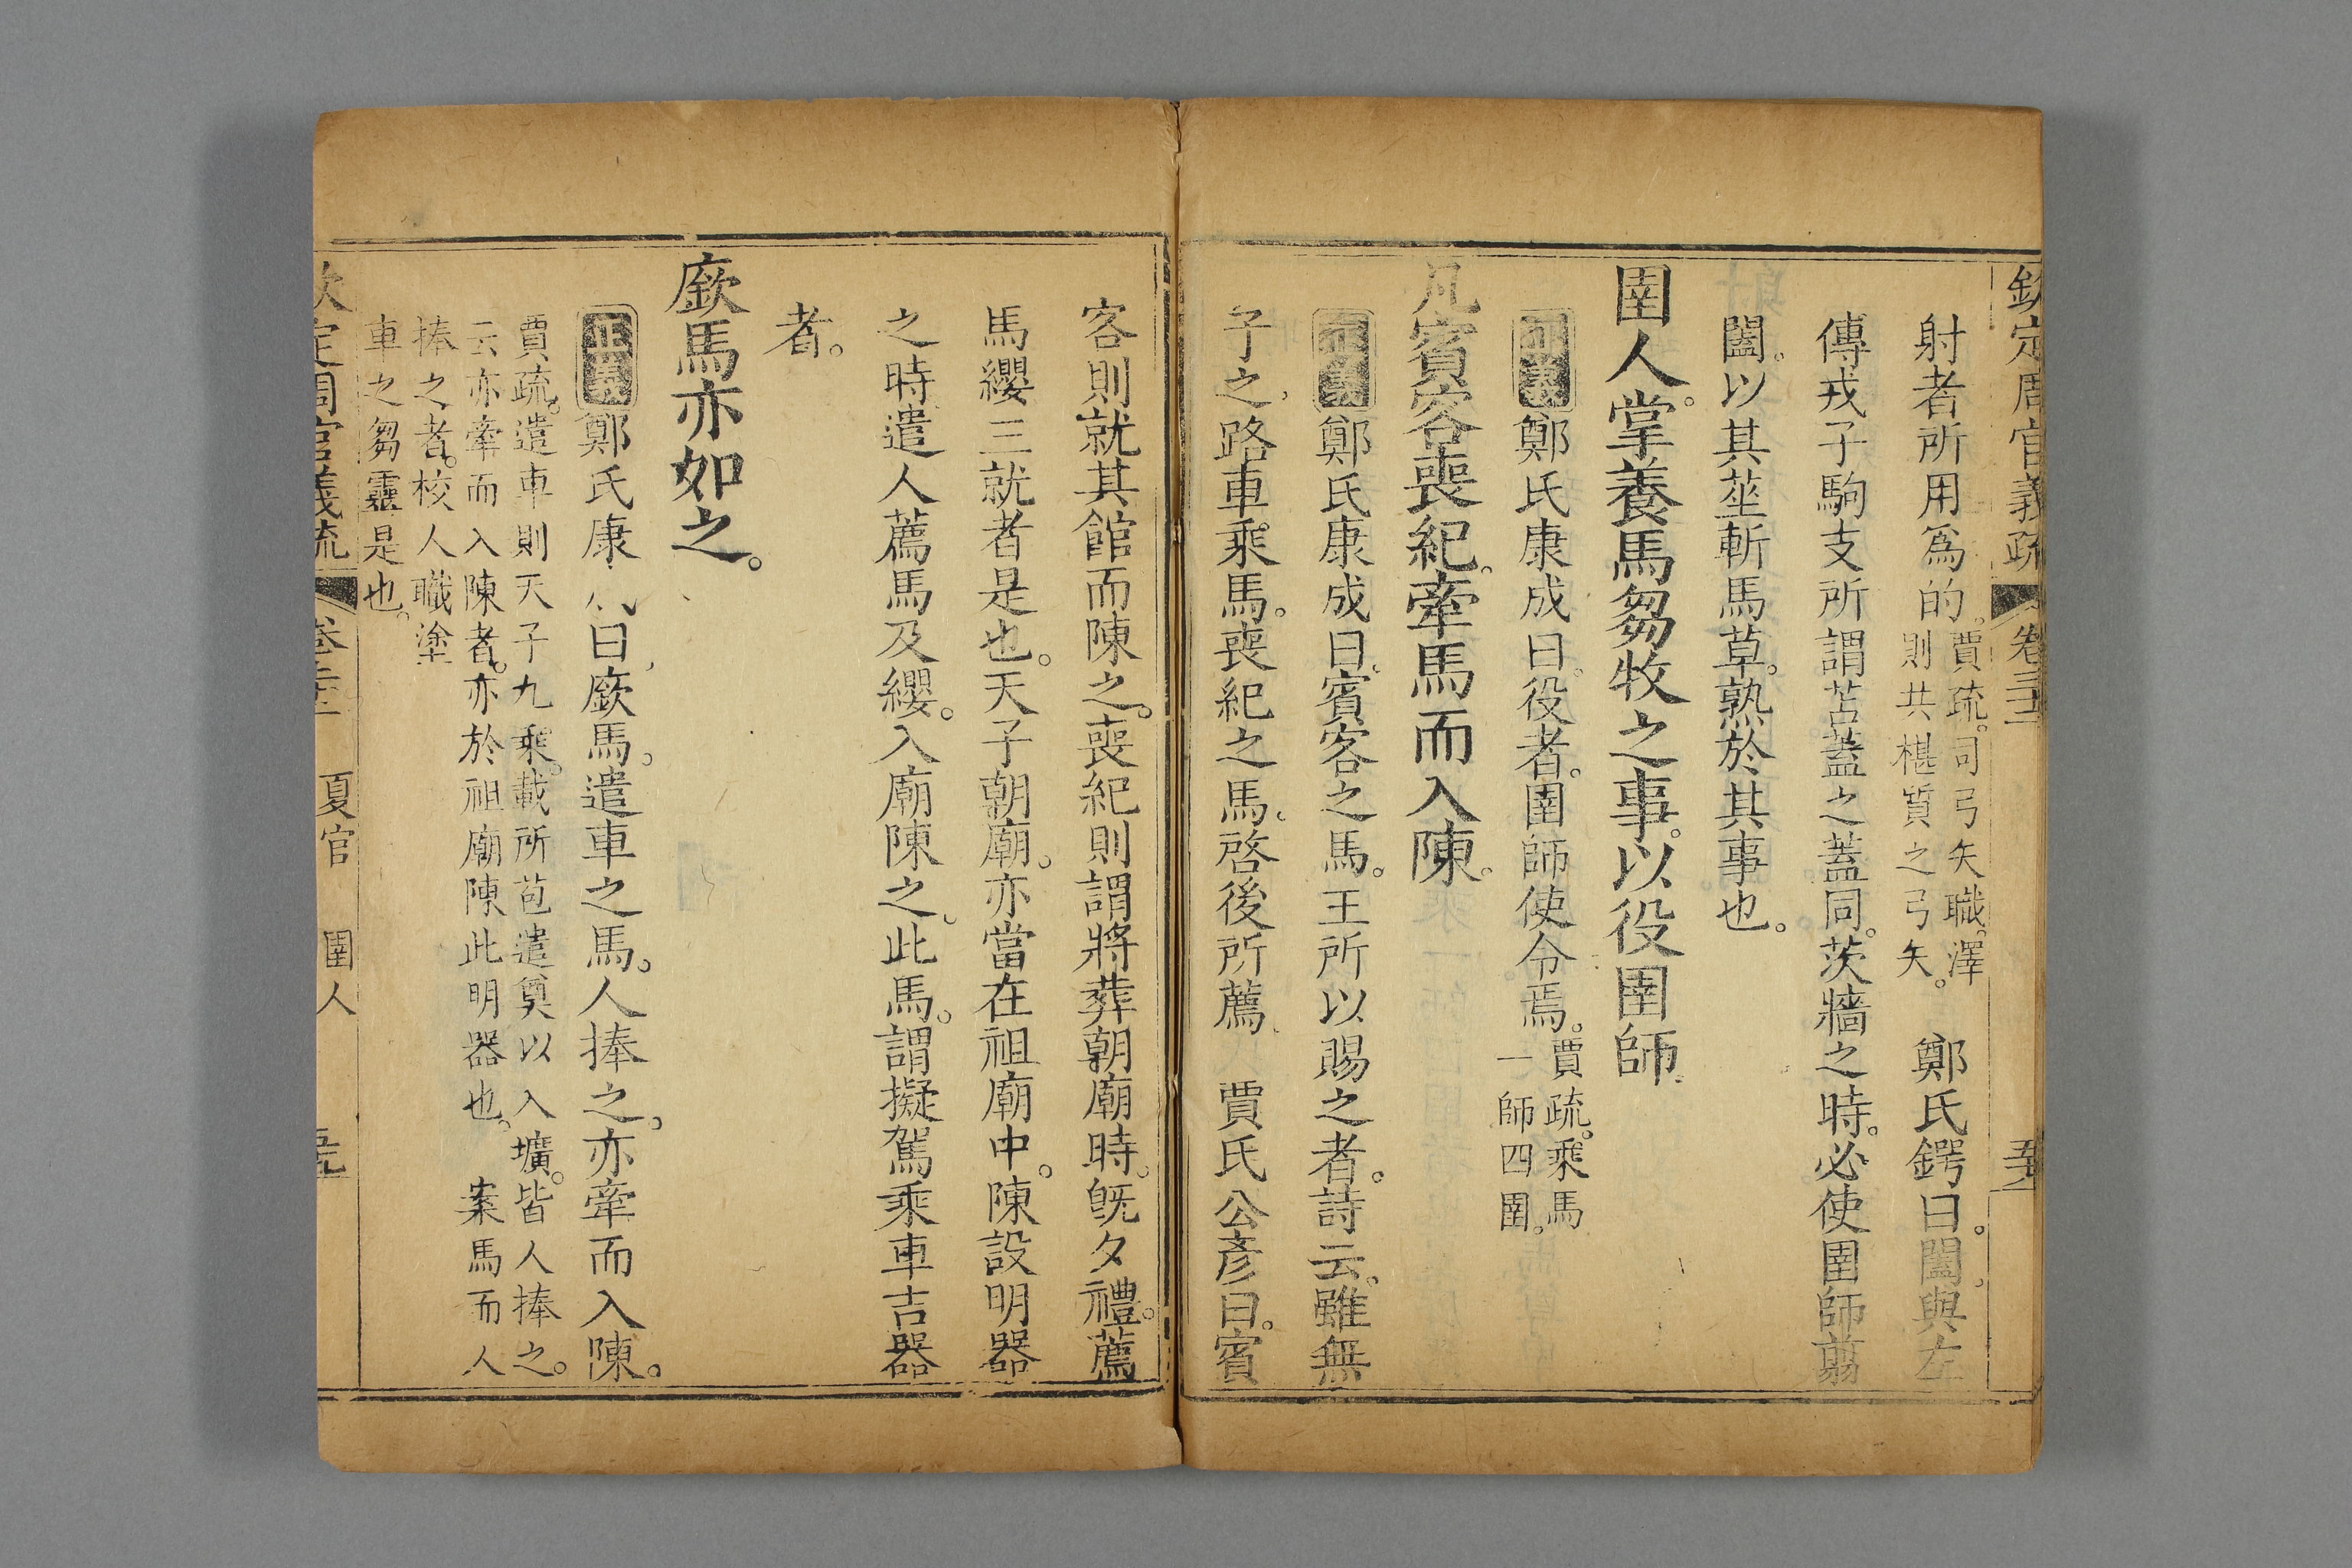 欽定周官義疏 卷三十二
射者所用爲的。賈疏。司弓矢職。澤
則共椹質之弓矢。 鄭氏鍔曰。闔。與左
傳戎子駒支所謂苫蓋之蓋同。茨牆之時。必使圉師翦
闔。以其莝斬馬草。熟於其事也。
圉人。掌養馬芻牧之事。以役圉師。
正義 鄭氏康成曰。役者。圉師使令焉。賈疏。乘馬
一師四圉。
凡賓客喪紀。牽馬而入陳。
正義 鄭氏康成曰。賓客之馬。王所以賜之者。詩云。雖無
予之。路車乘馬。喪紀之馬。啓後所薦。 賈氏公彥曰。賓
客則就其館而陳之。喪紀則謂將葬朝廟時。旣夕禮。薦
馬纓三就者是也。天子朝廟。亦當在祖廟中。陳設明器
之時。遣人薦馬及纓。入廟陳之。此馬。謂擬駕乘車吉器
者。
廞馬亦如之。
正義 鄭氏康成曰。廞馬。遣車之馬。人捧之。亦牽而入陳。
賈疏。遣車則天子九乘。載所苞遣奠以入壙。皆人捧之。
云亦牽而入陳者。亦於祖廟陳此明器也。 案馬而人
捧之者。校人職塗
車之芻靈是也。
欽定周官義疏 卷三十二 夏官 圉人